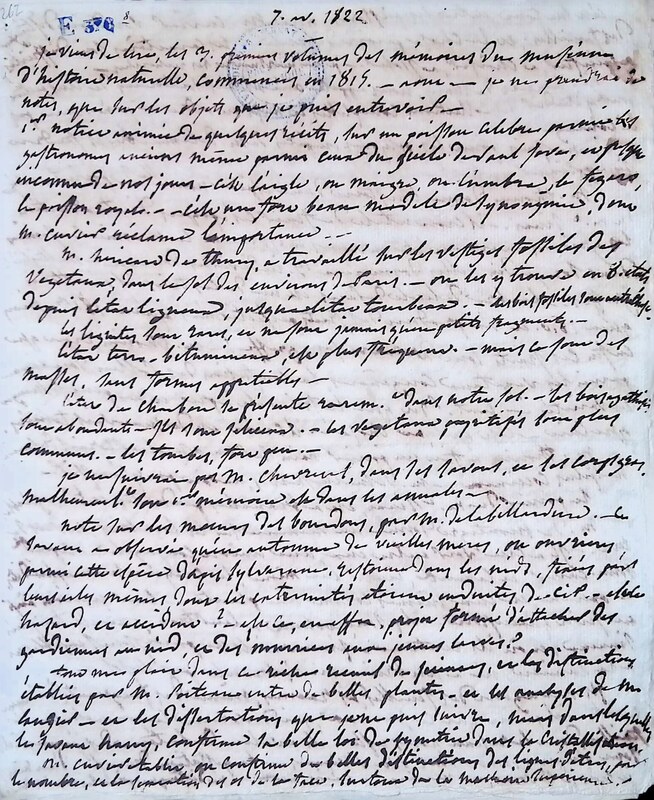 262 E 376 8
7. nov. 1822
je viens de lire, les 3. premiers volumes des mémoires du muséum
d'histoire naturelle, commencés en 1815. — — je ne prendrai de
notes, que sur les objets que je puis entrevoir —
1re notice animée de quelques récits, sur un poisson célèbre parmi les
gastronomes anciens même parmi ceux du siècle de Paul Jove, et presque
inconnu de nos jours — c'est l'aigle, ou maigre, ou l'umbra, le
le poisson royal. — c'est un fort beau modèle de synonymie, dont
m. cuvier réclame l'importance —
m. héricart de thury, a travaillé sur les vestiges fossiles des
végétaux, dans le sol des environs de Paris. — on les y trouve en états
depuis l'état ligneux, jusqu'à l'état tourbeux. — les bois fossiles sont
les lignites sont rares, et ne sont jamais qu'en petits fragments. —
l'état terro-bitumineux, est plus fréquent. — mais ce sont des
masses, sans formes —
l'état de charbon se présente rarem.t dans notre sol. — les bois agatisés
sont abondants — ils sont siliceux. — les végétaux pyritisés sont plus
communs. — les tourbes, fort peu. —
je ne suivrai pas m. chevreul, dans les savons, et les corps gras,
malheureusem.t son 1er mémoire est dans les annales —
note sur les moeurs des bourdons, par m. de labillardière. — ce
savant a observé qu'en automne de vieilles mères, ou ouvrières
parmi cette espèce d'apis sylvarum, restoient dans les nids,
les ailes mêmes dont les extrémités étoient enduites de cire. — est-ce
hasard, et accident ? — est-ce, en effet, projet formé d'attacher des
gardiennes au nid, et des nourrices aux jeunes larves ?
tout me plaît dans ce riche recueil de sciences, et les distinctions
établies par m. Poiteau entre de belles plantes — et les analyses de m.
laugier — et les dissertations que je ne puis suivre, mais dans lesquelles
le savant hauy, confirme la belle loi de symétrie dans la cristallisation,
m. cuvier établit, ou confirme de belles distinctions des
le nombre, et la des os de la face, surtout de la machoire supérieure. —